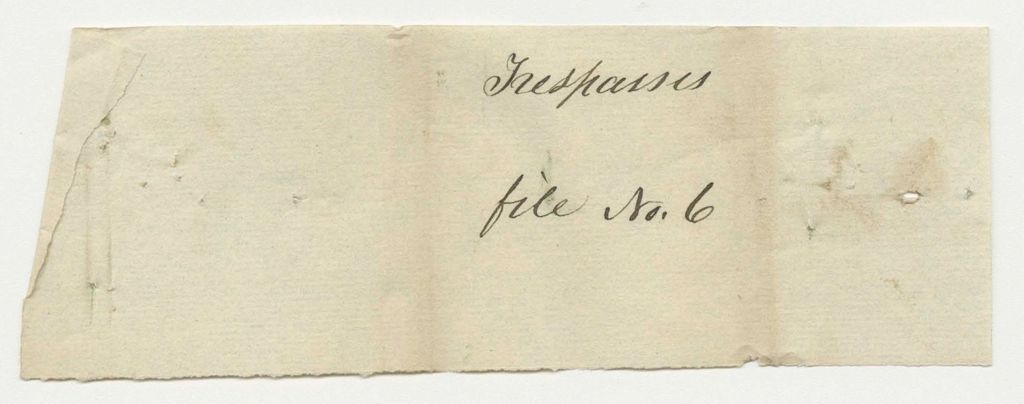 Trespasses
file No. 6